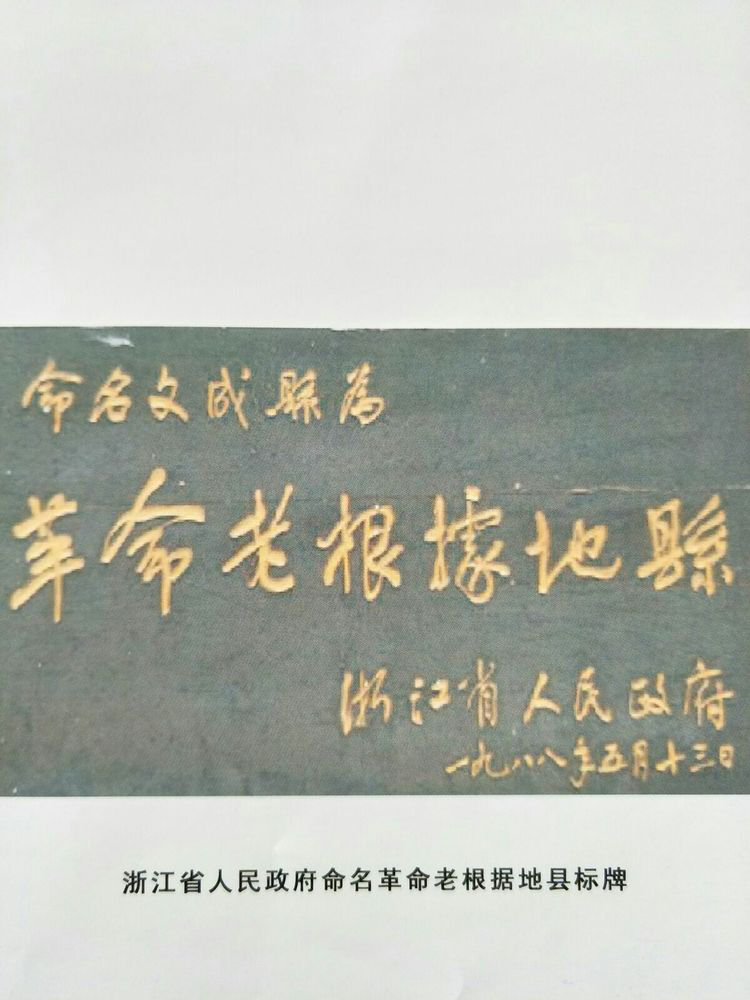 命名文成縣為
革命老根據地縣
浙江省人民政府
一九八八年五月十三日
浙江省人民政府命名革命老根据地县标牌